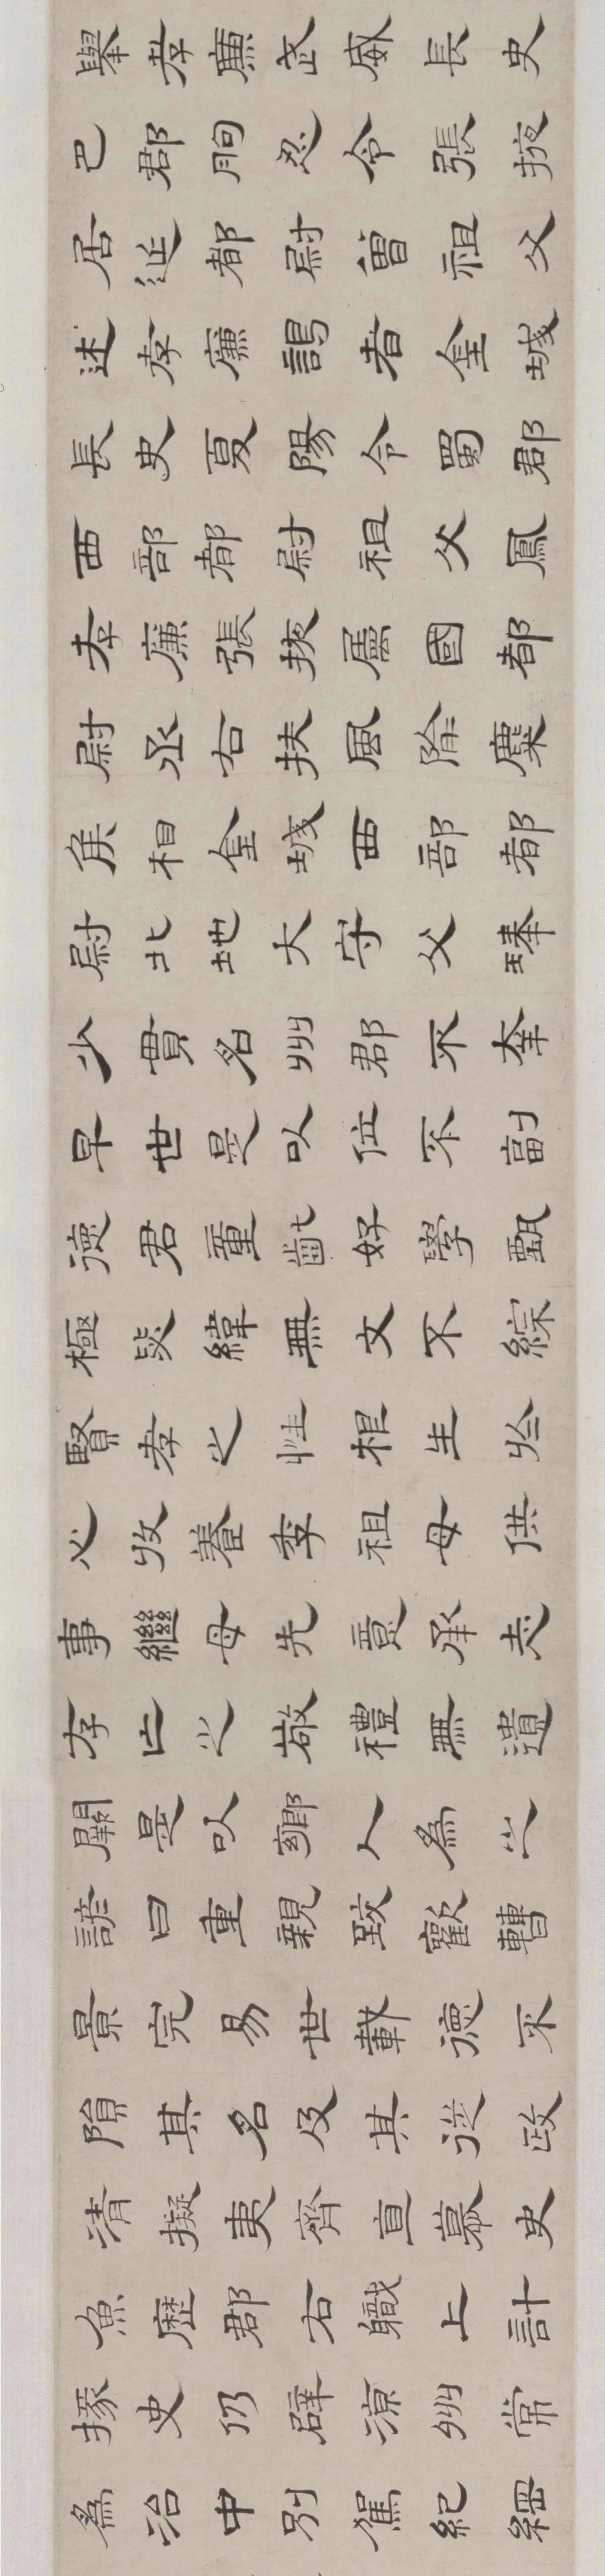 舉孝廉武威長史
巴郡朐忍令張掖
居延都尉曾祖父
述孝廉謁者金城
長史夏陽令蜀郡
西部都尉祖父鳳
孝廉張掖屬國都
尉丞右扶風隃麋
侯相金城西部都
尉北地大守父琫
少貫名州郡不幸
早世是以位不副
德君童齔好學甄
極毖緯無文不綜
賢孝之性根生於
心收養季祖母供
事繼母先意承志
存亡之敬禮無遺
闕是以鄉人為之
諺曰重親致歡曹
景完易世載德不
隕其名及其從政
清擬夷齊直慕史
魚歷郡右職上計
掾史仍辟涼州常
為治中別駕紀綱